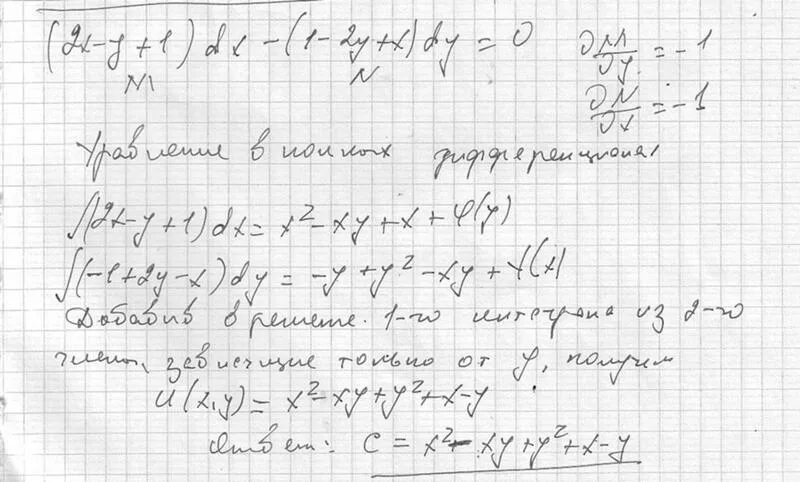 (2x-y+1)dx-(1-2y+x)dy=0 ∂M/∂y=-1
M N ∂N/∂x=-1
Уравнение в полных дифференциалах
∫(2x-y+1)dx=x²-xy+x+φ(y)
∫(-1+2y-x)dy=-y+y²-xy+Ψ(x)
Добавив в решение 1-го интеграла из 2-го
члены, зависящие только от y, получим
U(x,y)=x²-xy+y²+x-y
Ответ: C=x²-xy+y²+x-y